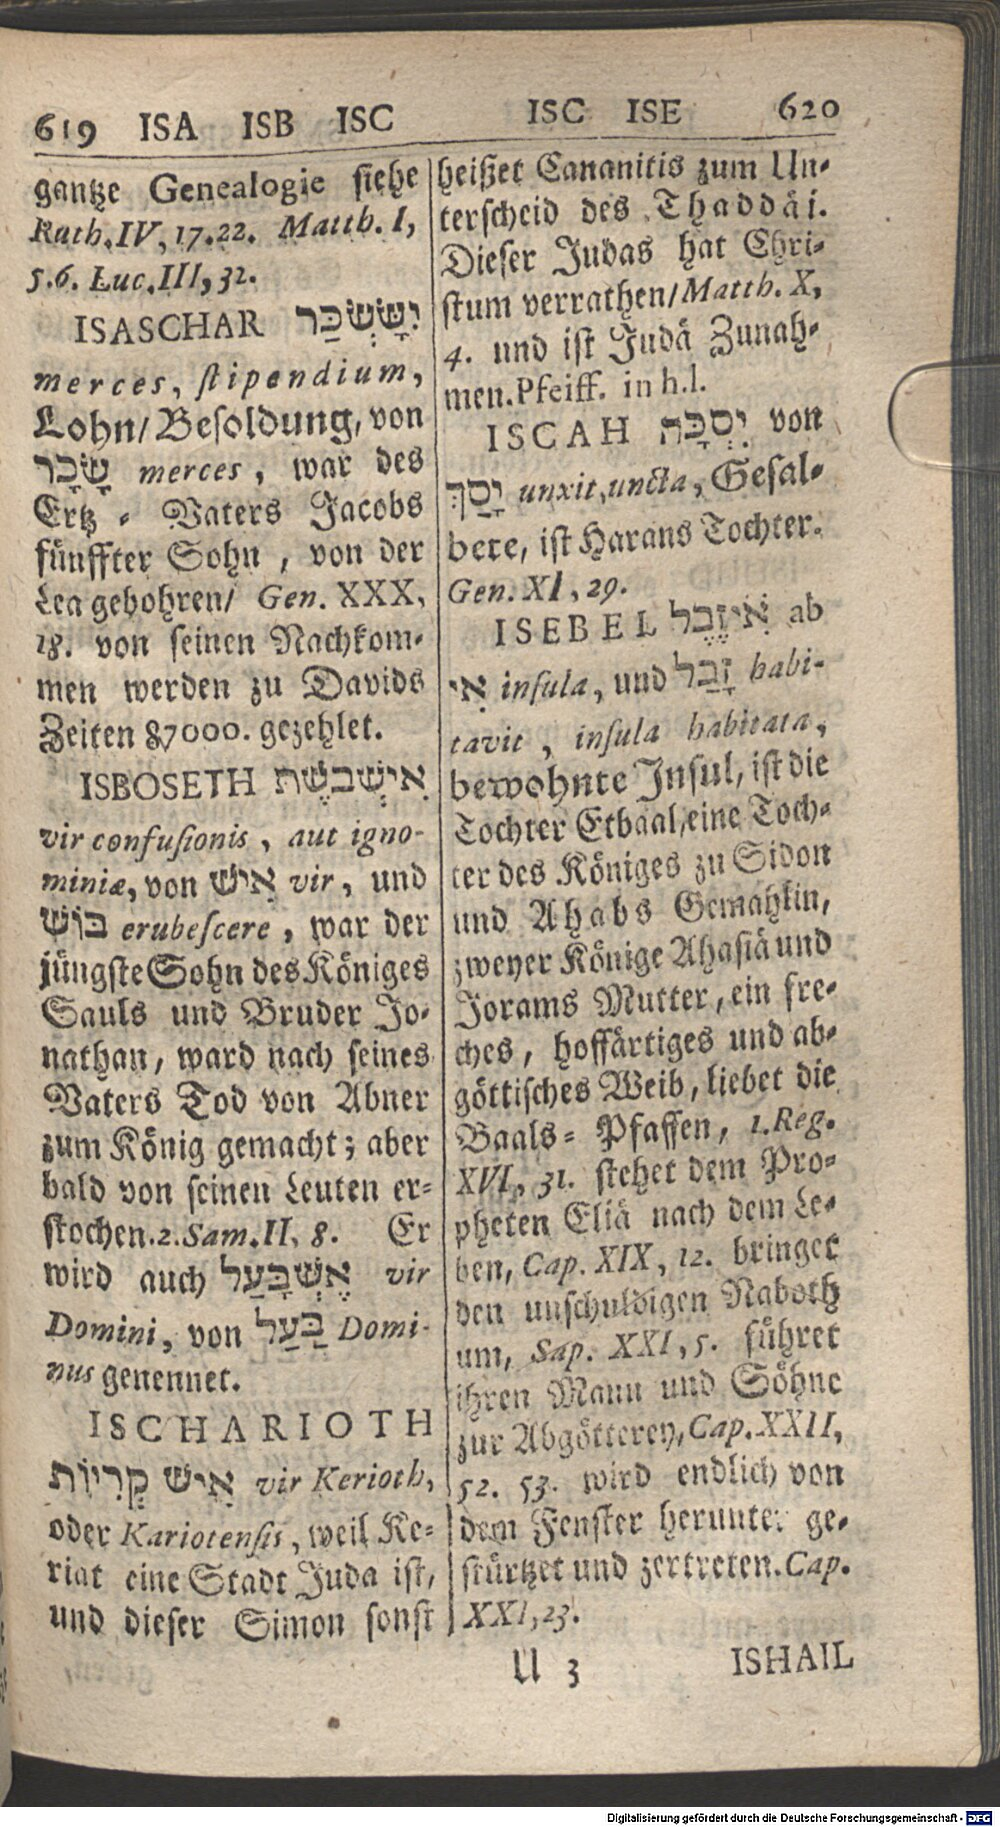 619 ISA ISB ISC
gantze Genealogie siehe
Ruth. IV, 17.22. Matth. I,
5.6. Luc. III, 32.
ISASCHAR יִשָּׂשְׂכַר
merces, stipendium,
Lohn/ Besoldung, von
שָׂכָר merces, war des
Ertz-Vaters Jacobs
fünffter Sohn, von der
Lea gebohren/ Gen. XXX,
18. von seinen Nachkom-
men werden zu Davids
Zeiten 87000. gezehlet.
ISBOSETH אִישְׁבֹּשֶׁת
vir confusionis, aut igno-
miniæ, von אִישׁ vir, und
בּוֹשׁ erubescere, war der
jüngste Sohn des Königes
Sauls und Bruder Jo-
nathan, ward nach seines
Vaters Tod von Abner
zum König gemacht; aber
bald von seinen Leuten er-
stochen. 2. Sam. II, 8. Er
wird auch אֶשְׁבָּעַל vir
Domini, von בַּעַל Domi-
nus genennet.
ISCHARIOTH
אִישׁ קְרִיּוֹת vir Kerioth,
oder Kariotensis, weil Ke-
riat eine Stadt Juda ist,
und dieser Simon sonst
ISC ISE 620
heißet Cananitis zum Un-
terscheid des Thaddäi.
Dieser Judas hat Chri-
stum verrathen/ Matth. X,
4. und ist Judä Zunah-
men. Pfeiff. in h.l.
ISCAH יִסְכָּה von
יָסַךְ unxit, uncta, Gesal-
bete, ist Harans Tochter.
Gen. XI, 29.
ISEBEL אִיזֶבֶל ab
אִי insula, und זָבַל habi-
tavit, insula habitata,
bewohnte Insul, ist die
Tochter Etbaal, eine Toch-
ter des Königes zu Sidon
und Ahabs Gemahlin,
zweyer Könige Ahasiä und
Jorams Mutter, ein fre-
ches, hoffärtiges und ab-
göttisches Weib, liebet die
Baals-Pfaffen, 1. Reg.
XVI, 31. stehet dem Pro-
pheten Eliä nach dem Le-
ben, Cap. XIX, 12. bringet
den unschuldigen Naboth
um, Sap. XXI, 5. führet
ihren Mann und Söhne
zur Abgötterey, Cap. XXII,
52. 53. wird endlich von
dem Fenster herunter ge-
stürtzet und zertreten. Cap.
XXI, 23.
U 3 ISHAIL
Digitalisierung gefördert durch die Deutsche Forschungsgemeinschaft - DFG